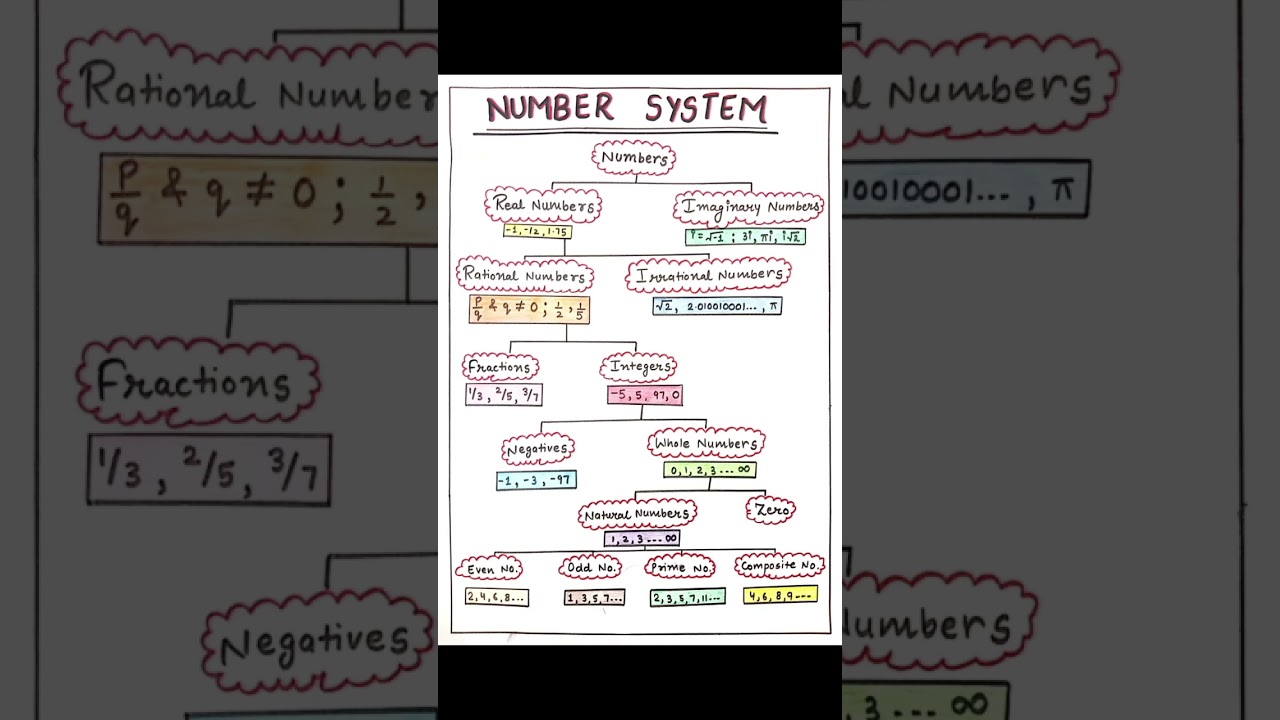 NUMBER SYSTEM
Numbers
Real Numbers
-1, -12, 1.75
Imaginary Numbers
i = √-1 ; 3i, πi, i√2
Rational Numbers
p/q & q ≠ 0 ; 1/2, 1/5
Irrational Numbers
√2, 2.010010001..., π
Fractions
1/3, 2/5, 3/7
Integers
-5, 5, 97, 0
Negatives
-1, -3, -97
Whole Numbers
0, 1, 2, 3 ... ∞
Natural Numbers
1, 2, 3 .... ∞
Zero
Even No.
2, 4, 6, 8...
Odd No.
1, 3, 5, 7...
Prime No.
2, 3, 5, 7, 11...
Composite No.
4, 6, 8, 9 ---
Rational Number
p/q & q ≠ 0 ; 1/2,
Fractions
1/3, 2/5, 3/7
Negatives
l Numbers
10010001..., π
Numbers
3 ... ∞